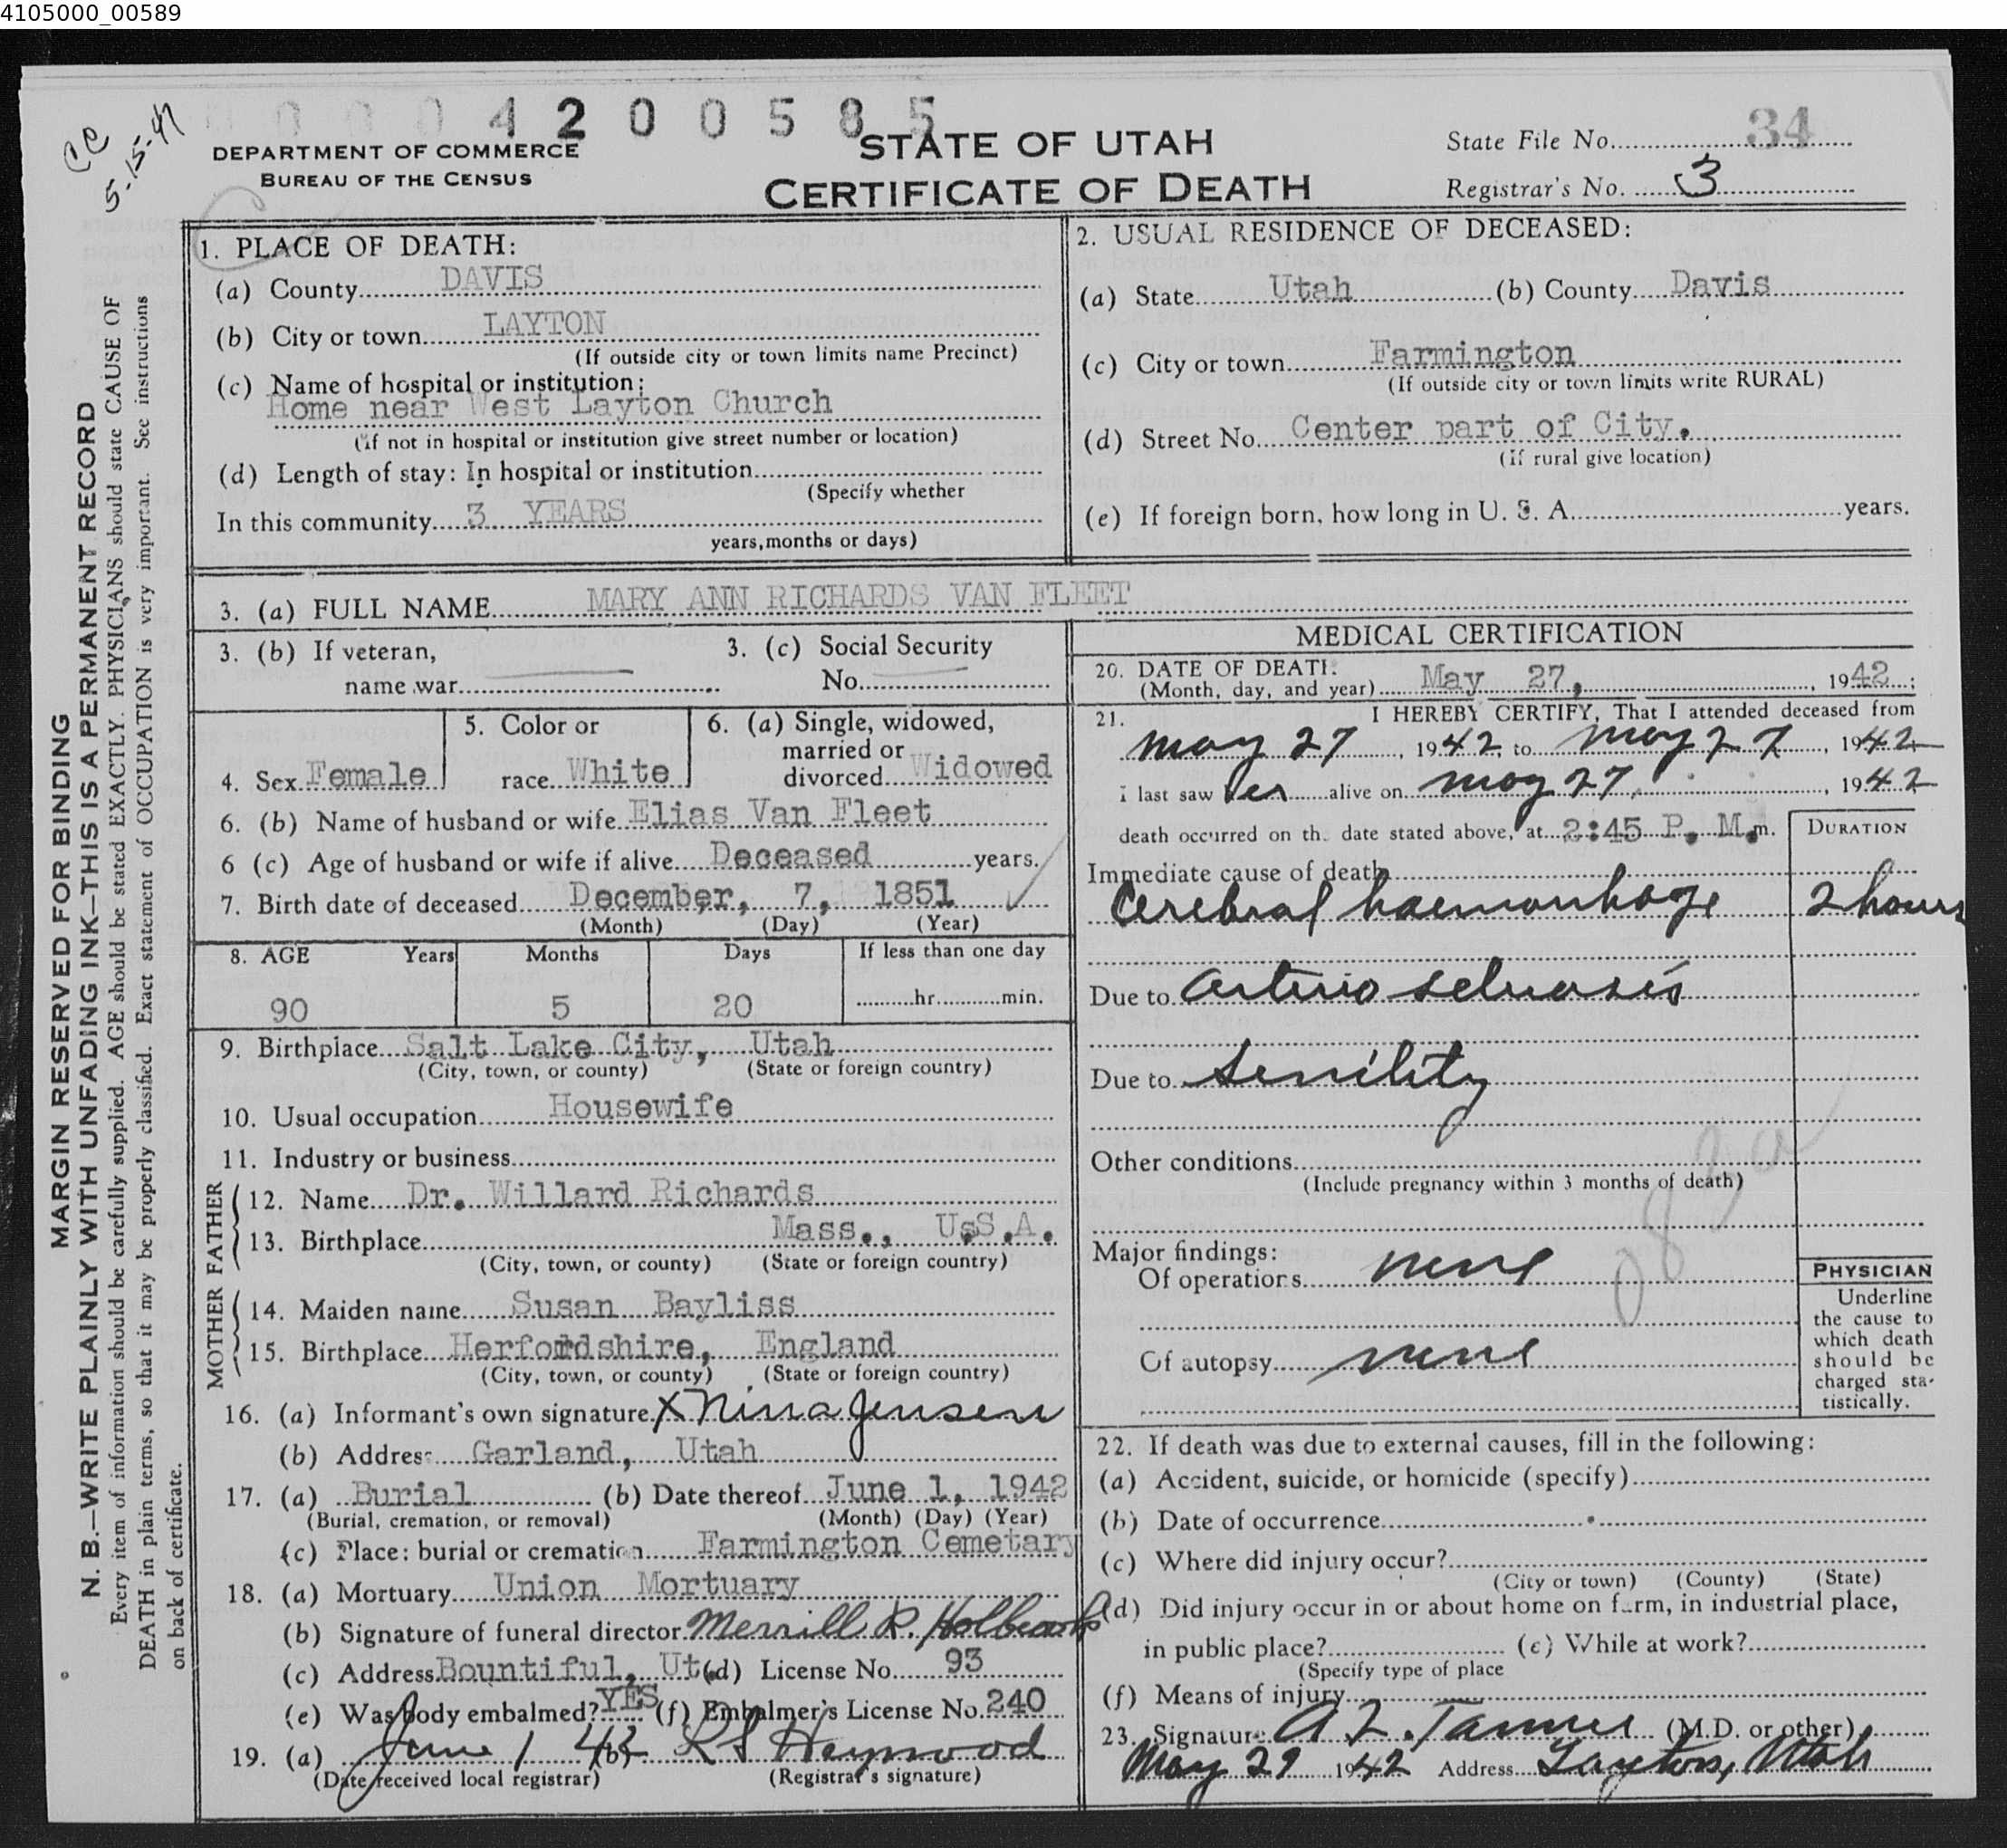 4105000_00589
CC
5-15-47
0 0 0 4 2 0 0 5 8 5
DEPARTMENT OF COMMERCE
BUREAU OF THE CENSUS
STATE OF UTAH
CERTIFICATE OF DEATH
State File No. 34
Registrar's No. 3
MARGIN RESERVED FOR BINDING
N. B.—WRITE PLAINLY WITH UNFADING INK—THIS IS A PERMANENT RECORD
Every item of information should be carefully supplied. AGE should be stated EXACTLY. PHYSICIANS should state CAUSE OF
DEATH in plain terms, so that it may be properly classified. Exact statement of OCCUPATION is very important. See instructions
on back of certificate.
1. PLACE OF DEATH:
(a) County DAVIS
(b) City or town LAYTON
(If outside city or town limits name Precinct)
(c) Name of hospital or institution:
Home near West Layton Church
(If not in hospital or institution give street number or location)
(d) Length of stay: In hospital or institution
(Specify whether
In this community 3 YEARS
years, months or days)
2. USUAL RESIDENCE OF DECEASED:
(a) State Utah (b) County Davis
(c) City or town Farmington
(If outside city or town limits write RURAL)
(d) Street No. Center part of City.
(If rural give location)
(e) If foreign born, how long in U. S. A. years.
3. (a) FULL NAME MARY ANN RICHARDS VAN FLEET
3. (b) If veteran,
name war
3. (c) Social Security
No.
4. Sex Female
5. Color or
race White
6. (a) Single, widowed,
married or
divorced Widowed
6. (b) Name of husband or wife Elias Van Fleet
6 (c) Age of husband or wife if alive Deceased years.
7. Birth date of deceased December, 7, 1851
(Month) (Day) (Year)
8. AGE Years Months Days If less than one day
90 5 20 hr. min.
9. Birthplace Salt Lake City, Utah
(City, town, or county) (State or foreign country)
10. Usual occupation Housewife
11. Industry or business
FATHER
12. Name Dr. Willard Richards
13. Birthplace Mass., U.S.A.
(City, town, or county) (State or foreign country)
MOTHER
14. Maiden name Susan Bayliss
15. Birthplace Herfordshire, England
(City, town, or county) (State or foreign country)
16. (a) Informant's own signature X Nina Jensen
(b) Address Garland, Utah
17. (a) Burial (b) Date thereof June 1, 1942
(Burial, cremation, or removal) (Month) (Day) (Year)
(c) Place: burial or cremation Farmington Cemetary
18. (a) Mortuary Union Mortuary
(b) Signature of funeral director Merrill R. Holbrook
(c) Address Bountiful, Ut. (d) License No. 93
(e) Was body embalmed? YES (f) Embalmer's License No. 240
19. (a) June 1 42 (b) R S Heywood
(Date received local registrar) (Registrar's signature)
MEDICAL CERTIFICATION
20. DATE OF DEATH:
(Month, day, and year) May 27, 1942;
21. I HEREBY CERTIFY, That I attended deceased from
May 27, 1942, to May 27, 1942
I last saw her alive on May 27, 1942
death occurred on the date stated above, at 2:45 P. M. m.
DURATION
Immediate cause of death
Cerebral haemorrhage 2 hours
Due to arterio sclerosis
Due to Senility
Other conditions
(Include pregnancy within 3 months of death)
Major findings:
Of operations none
Of autopsy none
PHYSICIAN
Underline
the cause to
which death
should be
charged sta-
tistically.
22. If death was due to external causes, fill in the following:
(a) Accident, suicide, or homicide (specify)
(b) Date of occurrence
(c) Where did injury occur?
(City or town) (County) (State)
(d) Did injury occur in or about home on farm, in industrial place,
in public place? (e) While at work?
(Specify type of place
(f) Means of injury
23. Signature A Z. Tanner (M.D. or other)
May 29 1942 Address Layton, Utah